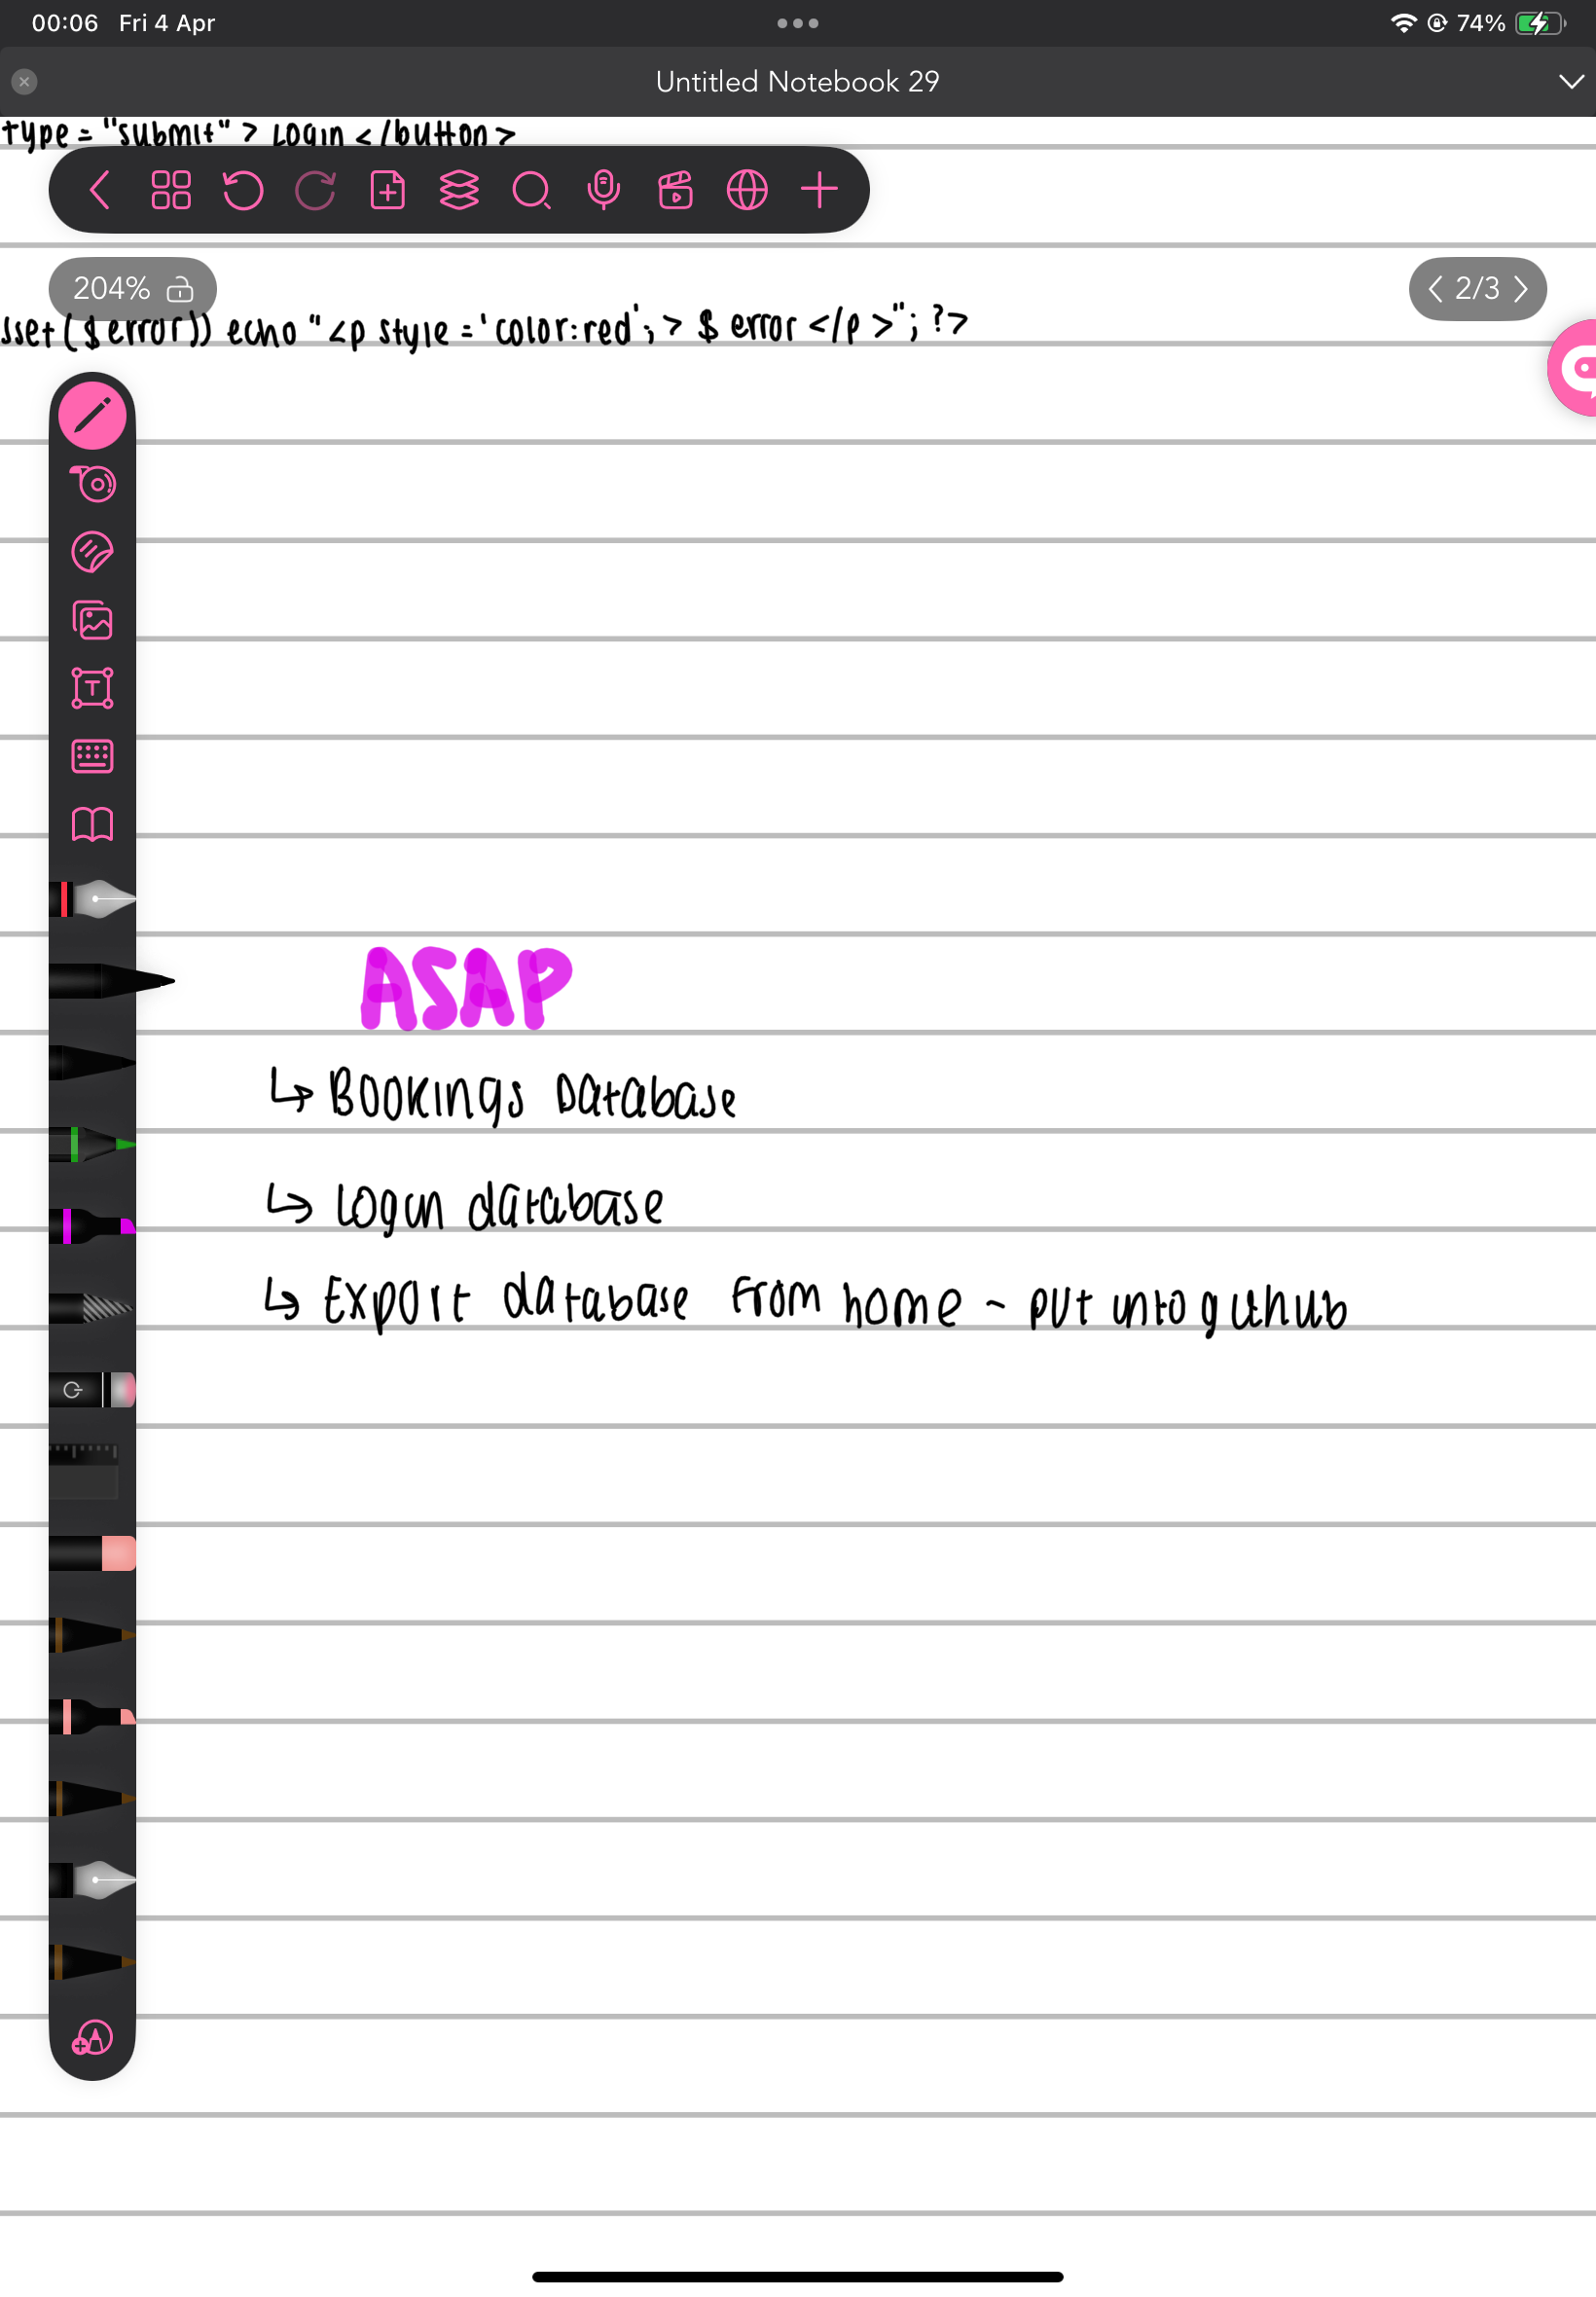 00:06 Fri 4 Apr
74%
Untitled Notebook 29
type = "submit" > Login </button>
204%
2/3
sset ($error)) echo "<p style = 'color:red'; > $ error </p >"; ?>
ASAP
↳ Bookings Database
↳ Login database
↳ Export database from home - put into github